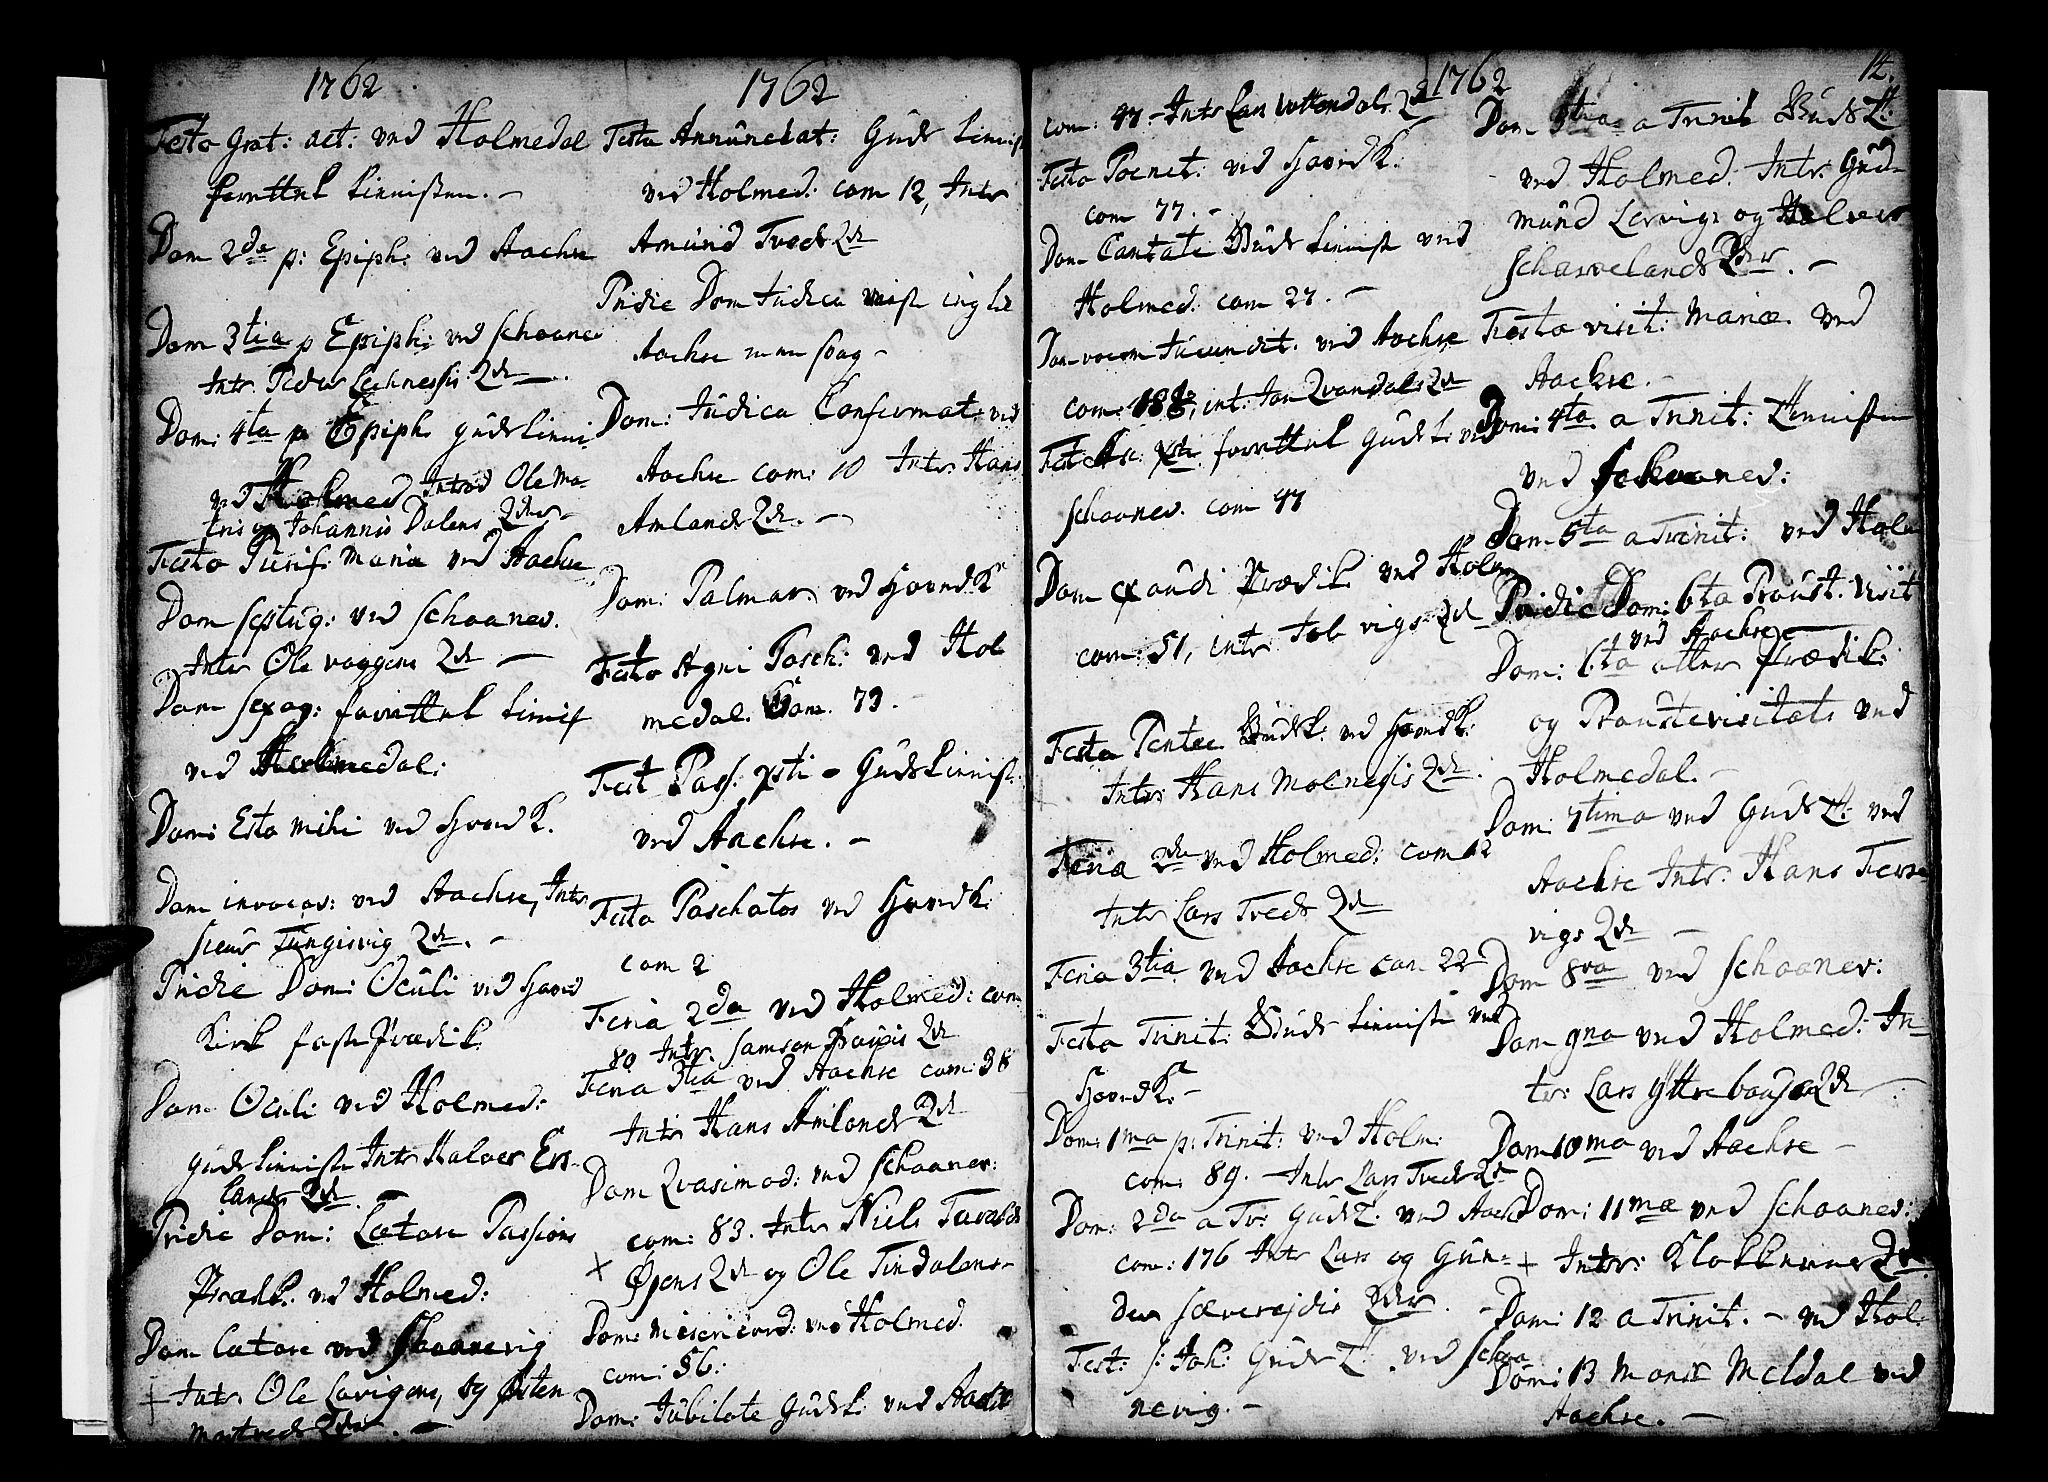 1762
Festo Grat: act: ved Holmedal
forrettet tienisten. -
Dom 2da p: Epiph: ved Aachre
Dom 3tia p Epiph: ved Schoanev
Intr. Peder 2de -
Dom: 4ta p Epiph. Guds tieni
ved Holmed Introd Ole Ma-
tris og Johannis Dalens 2der -
Festo Purif: Mariæ ved Aachre
Dom Septug: ved Schoanev.
Intr Ole vaagens 2de -
Dom Sexag: forrettet tienist
ved Holmedal:
Dom: Esto mihi ved Hovedk.
Dom invocav: ved Aachre, Intr
Sieur Tungisvig 2de. -
Pridie Dom: Oculi ved Hoved
Kirk faste Prædik.
Dom. Oculi ved Holmed:
Guds tieniste Intr Halvor Ers-
lands 2de.
Pridie Dom: Lætare Passions
Prædk. ved Holmed:
Dom Lætare ved Schoanevig
+ Intr. Ole Lavigens, og Østen
2der. -
1762
Festo Annunciat: Guds tienist
ved Holmed: com 12, Intr
Amund Tvedt 2de
Pridie Dom Judica ing til
Aachre
Dom: Judica Confirmat: ved
Aachre com: 10 Intr: Hans
Amlands 2de. -
Dom: Palmar. ved Hovedk
Festo Agni Pasch: ved Hol
medal. Com. 73.
Fest Pass. Xsti - Guds tienist
ved Aachre. -
Festo Paschatos ved Hovedk.
com 2
Feria 2da ved Holmed: com
80 Intr. Samson 2de
Feria 3tia ved Aachre com: 38
Intr Hans Amlands 2de
Dom Qvasimod: ved Schoanev:
com: 83. Intr Niels Taralds
+ Øyens 2de og Ole Tindalens -
Dom: Misericord: ved Holmed.
com: 56:
Dom: Jubilate Guds t. ved Aachre
1762
com: 47 - Intr Lars Uttendals 2de
Festo Poenit: ved Hovedk:
com 77. -
Dom Cantate Guds tieniste ved
Holmed: com 27. -
Dom vocem Jucundit. ved Aachre
com: 188, int: Jon Qvandals 2de
Fest Asc: Xsti. forrettet Guds t. ved
Schoanev. com 47
Dom exaudi Prædik. ved Holm
com: 51, intr: vigs 2de
Festo Pentec Guds t: ved Hovedk:
Intr: Hans Molnesis 2de.
Feria 2da ved Holmed: com 12
Intr Lars Tvedt 2de
Feria 3tia. ved Aachre com 22
Festo Trinit: Guds tieniste ved
Hovedk. -
Dom: 1ma p: Trinit: ved Holm:
com: 89. - Intr Lars Tvedt 2de
Dom: 2da a Tr: Guds T: ved Aachr
com: 176 Intr Lars og Gun-
der Sæverejdis 2der.
Fest: S: Joh: Guds T: ved Schoa
nevig. -
14.
Dom 3tia a Trinit Guds T:
ved Holmed. Intr. Gud-
mund Lervigs og Halvor
Scharvelands 2der. -
Festo visit: Mariæ. ved
Aachre. -
Dom: 4ta a Trinit: Tienisten
ved Schoanev:
Dom 5ta a Trinit: ved Holm
Pridie Dom: 6ta Proust. Visit
ved Aachre -
Dom: 6ta atter Prædik:
og Proustevisitats ved
Holmedal. -
Dom: 7tima ved Guds T: ved
Aachre Intr. Hans
vigs 2de -
Dom 8va ved Schoanev:
Dom 9na ved Holmed: In-
tr: Lars 2de
Dom 10ma ved Aachre -
Dom: 11ma ved Schoanev:
+ Intr: Klokkerens 2de.
Dom: 12 a Trinit. - ved Hol.
Dom: 13 Mons: Meldal ved
Aachre. -